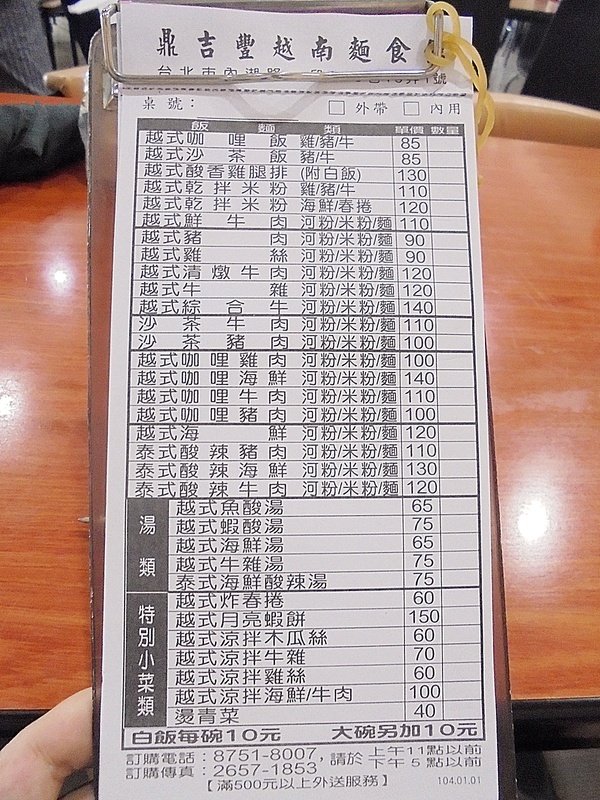 鼎吉豐越南麵食
台北市內湖路
桌號： □外帶 □內用
飯 麵 類 單價 數量
越式咖哩飯 雞/豬/牛 85
越式沙茶飯 豬/牛 85
越式酸香雞腿排 (附白飯) 130
越式乾拌米粉 雞/豬/牛 110
越式乾拌米粉 海鮮/春捲 120
越式鮮牛肉 河粉/米粉/麵 110
越式豬肉 河粉/米粉/麵 90
越式雞絲 河粉/米粉/麵 90
越式清燉牛肉 河粉/米粉/麵 120
越式牛雜 河粉/米粉/麵 120
越式綜合牛 河粉/米粉/麵 140
沙茶牛肉 河粉/米粉/麵 110
沙茶豬肉 河粉/米粉/麵 100
越式咖哩雞肉 河粉/米粉/麵 100
越式咖哩海鮮 河粉/米粉/麵 140
越式咖哩牛肉 河粉/米粉/麵 110
越式咖哩豬肉 河粉/米粉/麵 100
越式海鮮 河粉/米粉/麵 120
泰式酸辣豬肉 河粉/米粉/麵 110
泰式酸辣海鮮 河粉/米粉/麵 130
泰式酸辣牛肉 河粉/米粉/麵 120
湯類
越式魚酸湯 65
越式蝦酸湯 75
越式海鮮湯 65
越式牛雜湯 75
泰式海鮮酸辣湯 75
特別小菜類
越式炸春捲 60
越式月亮蝦餅 150
越式涼拌木瓜絲 60
越式涼拌牛雜 70
越式涼拌雞絲 60
越式涼拌海鮮/牛肉 100
燙青菜 40
白飯每碗10元 大碗另加10元
訂購電話：8751-8007，請於 上午11點以前
訂購傳真：2657-1853 下午 5 點以前
【滿500元以上外送服務】 104.01.01